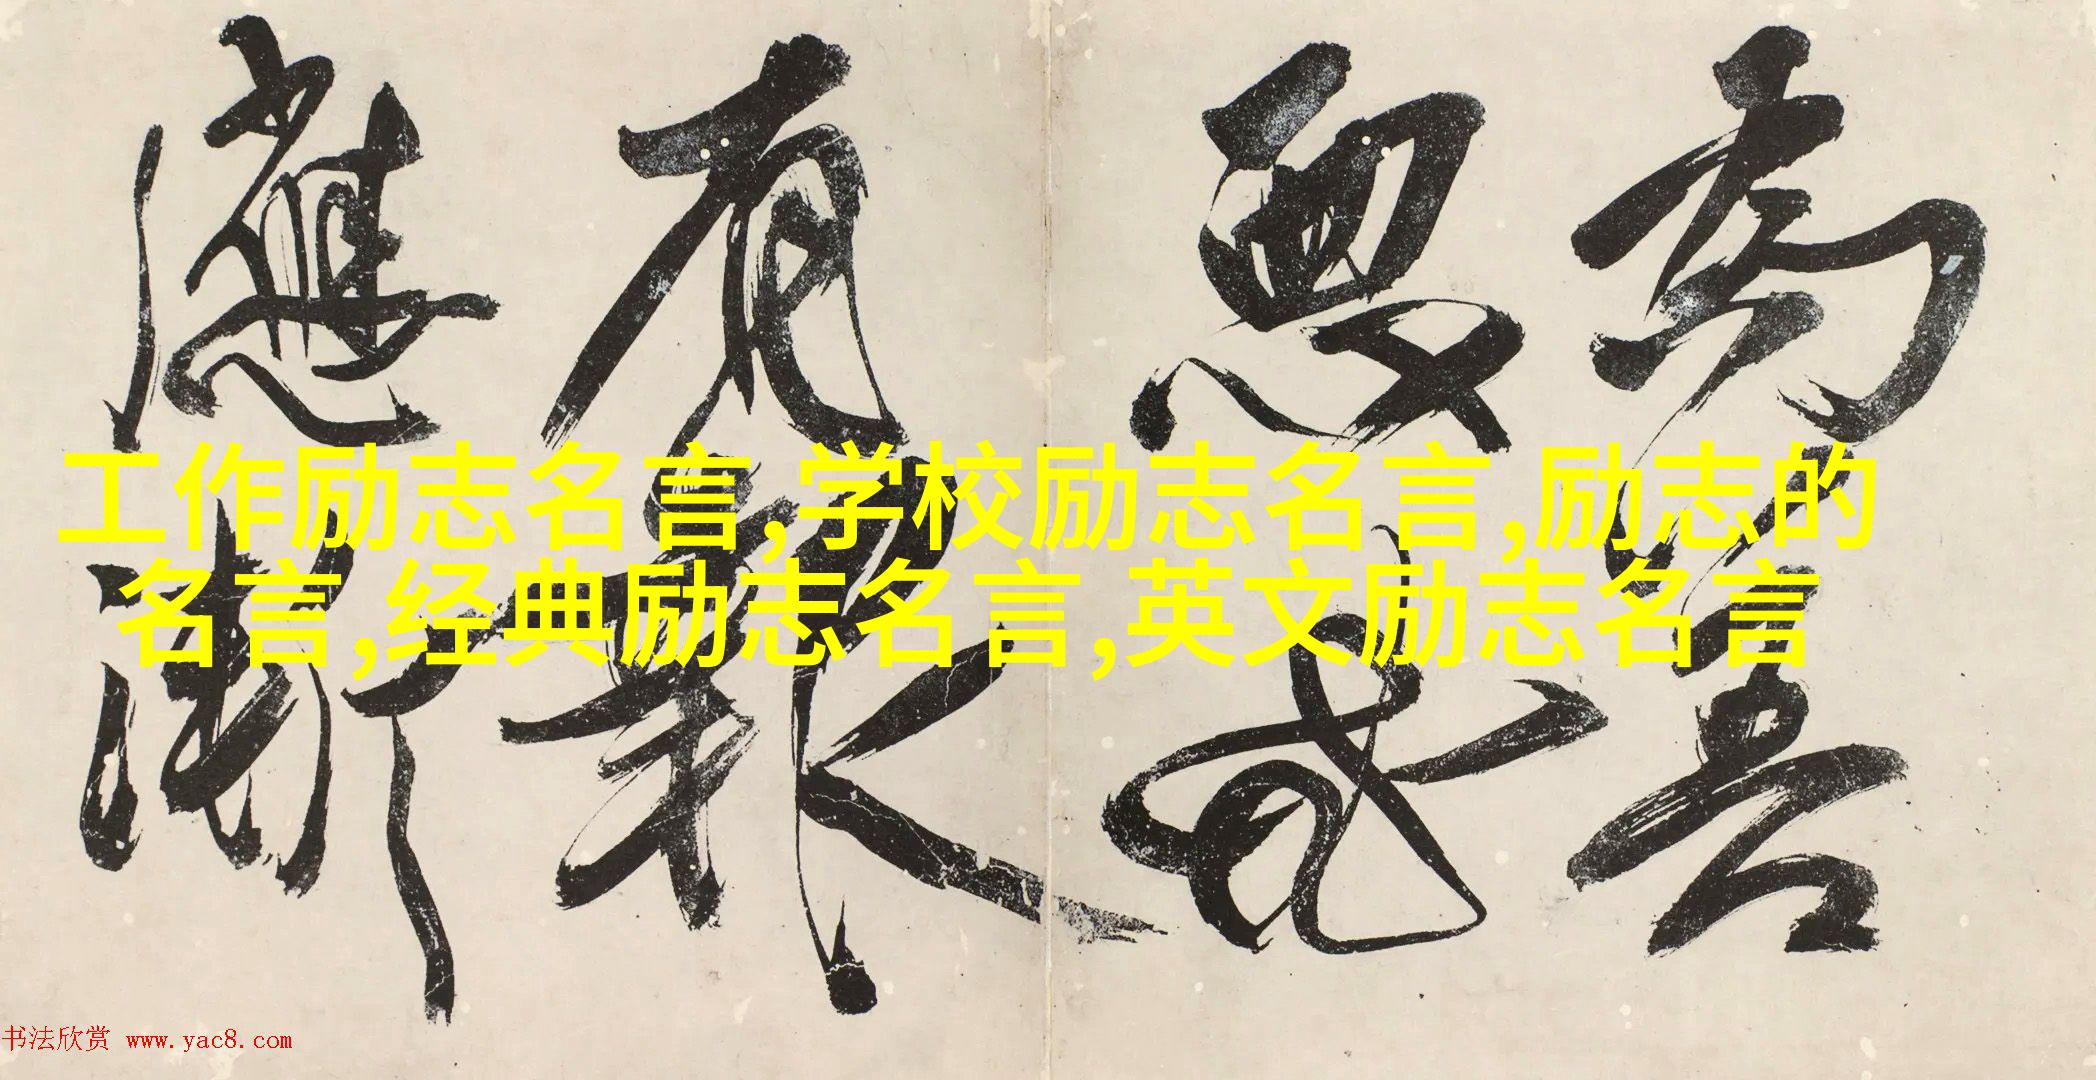 為善
惡或
有報
應漸
工作励志名言,学校励志名言,励志的
名言,经典励志名言,英文励志名言
书法欣赏 www.yac8.com